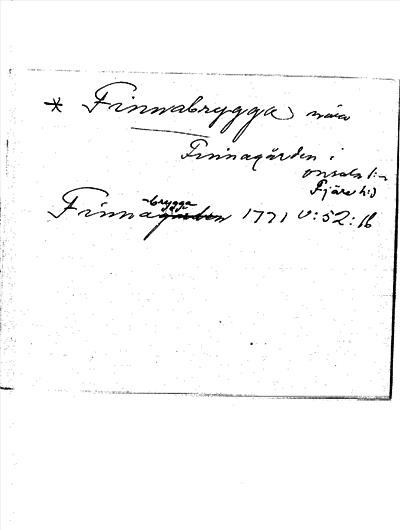 * Finnabrygga nära
Finnagården i
Onsala s:n
Fjäre h:d
-brygga
Finnagården 1771 U:52:16